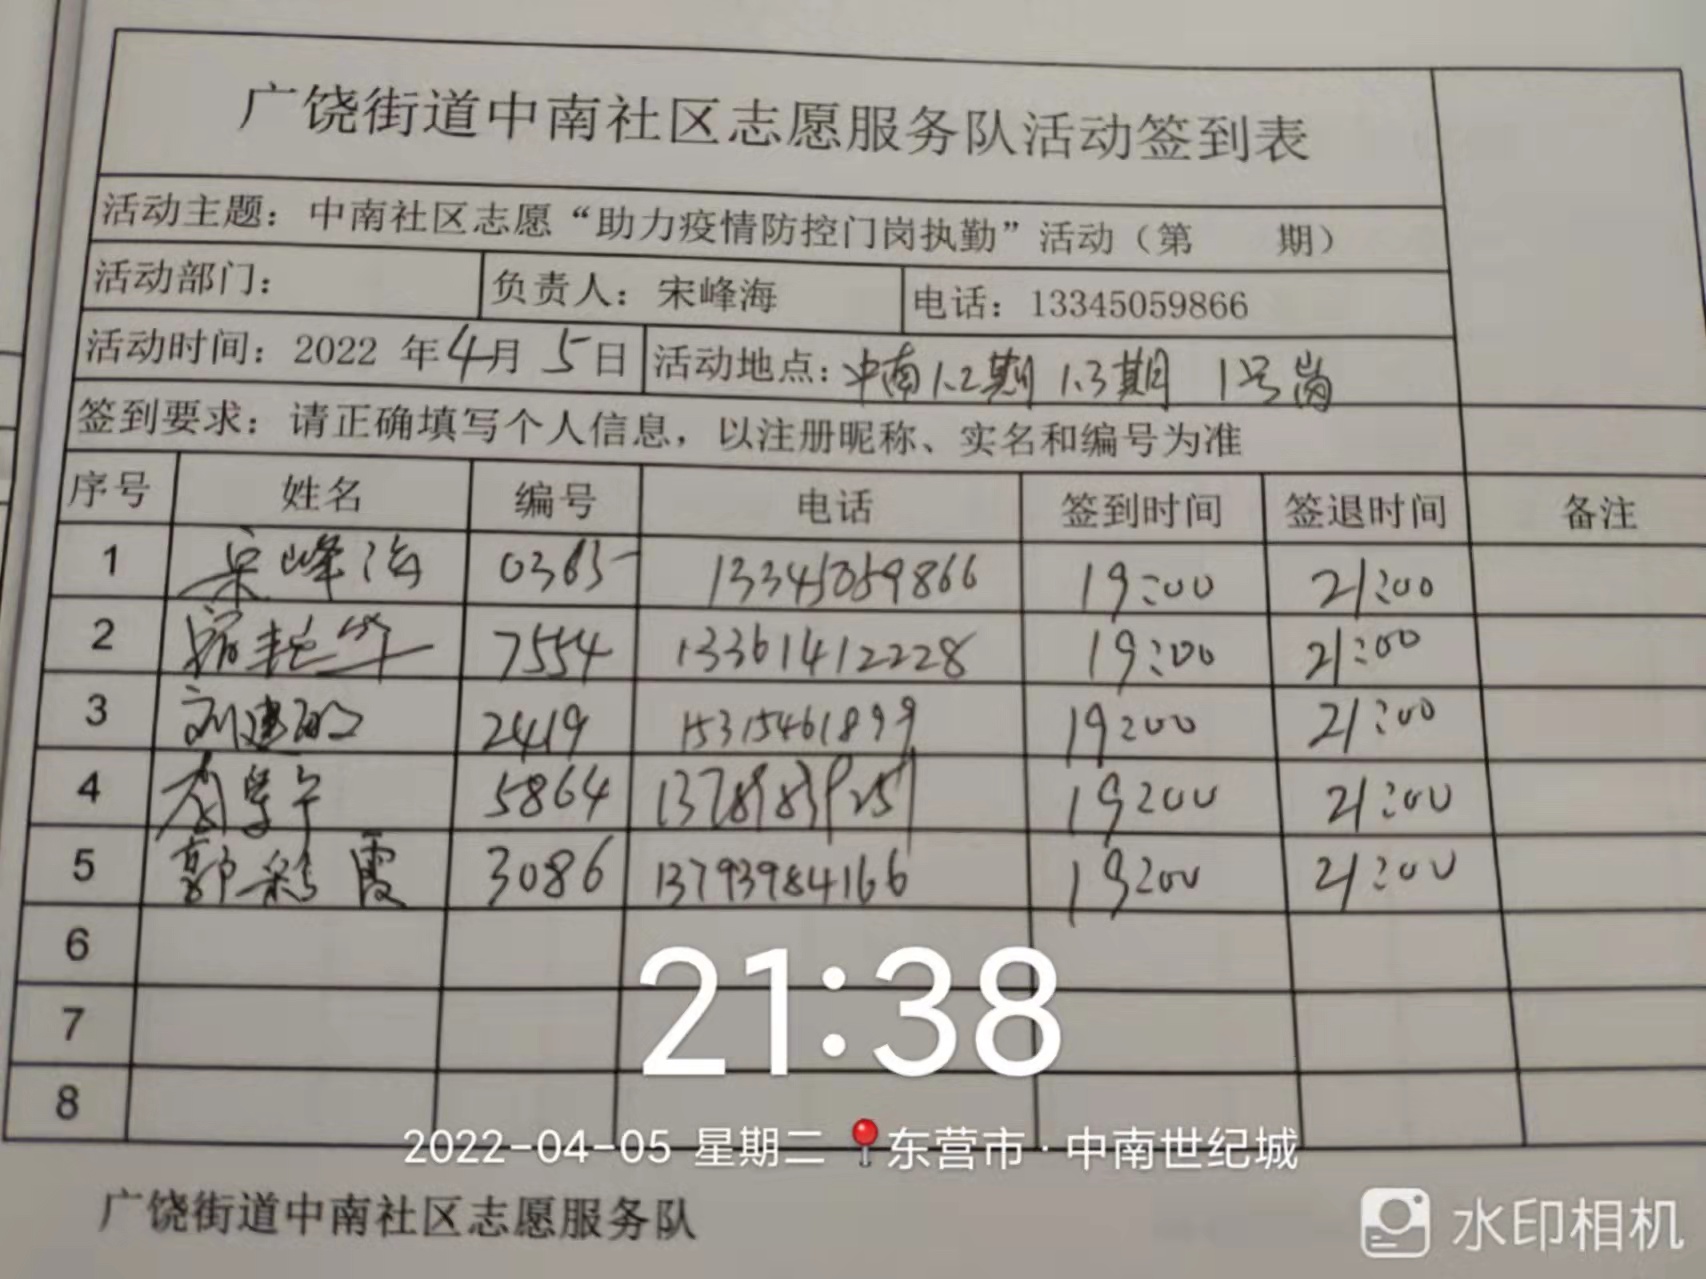 广饶街道中南社区志愿服务队活动签到表
活动主题：中南社区志愿“助力疫情防控门岗执勤”活动（第 期）
活动部门： 负责人：宋峰海 电话：13345059866
活动时间：2022 年 4 月 5 日 活动地点：中南1.2期 1.3期 1号岗
签到要求：请正确填写个人信息，以注册昵称、实名和编号为准
序号 姓名 编号 电话 签到时间 签退时间 备注
1 宋峰海 0365 13345059866 19:00 21:00
2 7554 13361412228 19:00 21:00
3 刘建 2419 15315461899 19:00 21:00
4 5864 19:00 21:00
5 郭彩霞 3086 13793984166 19:00 21:00
6
7
8
21:38
2022-04-05 星期二 东营市·中南世纪城
广饶街道中南社区志愿服务队
水印相机